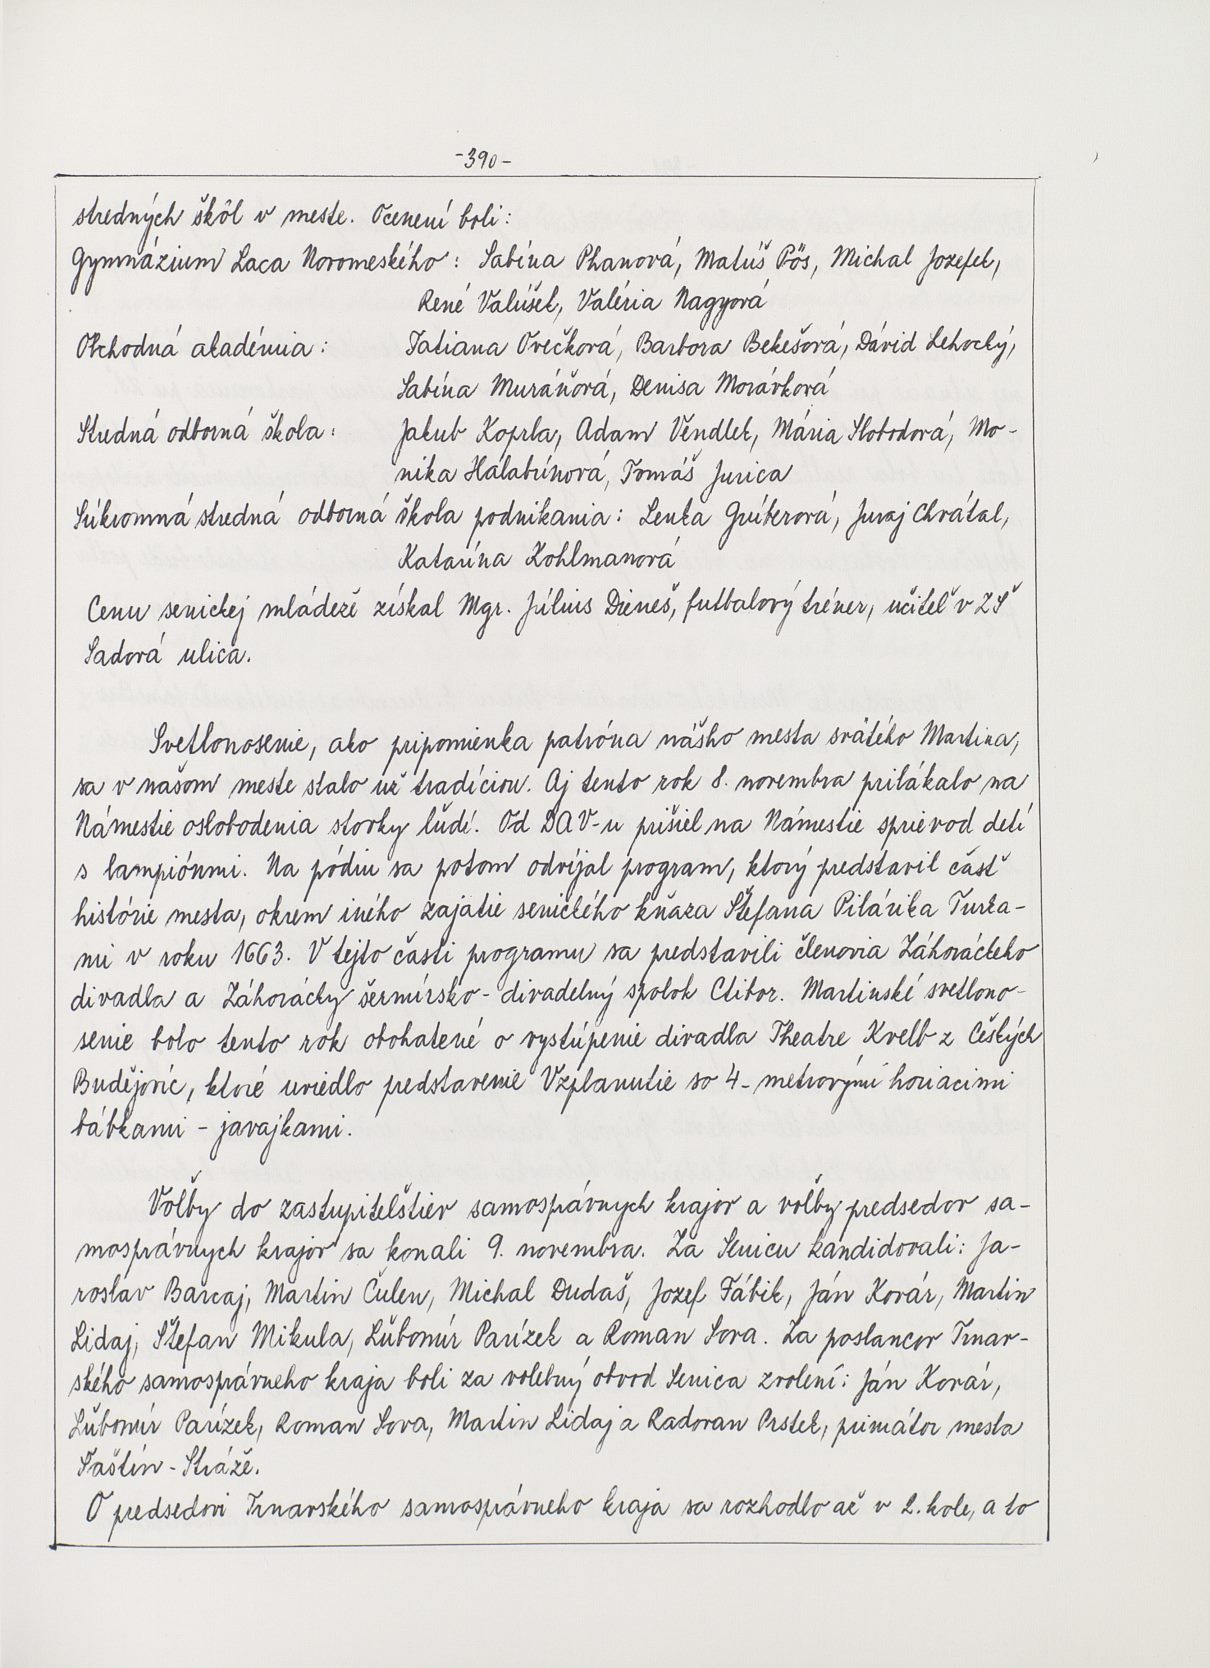 -390-
stredných škôl v meste. Ocenení boli:
Gymnázium Laca Novomeského: Sabína Phanová, Matúš Pös, Michal Jozefek,
René Valúšek, Valéria Nagyová
Obchodná akadémia: Tatiana Ovečková, Barbora Bekešová, Dávid Lehocký,
Sabína Muráňová, Denisa Morávková
Stredná odborná škola: Jakub Koprla, Adam Vendlek, Mária Slobodová, Mo-
nika Halabrínová, Tomáš Jurica
Súkromná stredná odborná škola podnikania: Lenka Grúberová, Juraj Chvátal,
Katarína Kohlmanová
Cenu senickej mládeže získal Mgr. Július Dieneš, futbalový tréner, učiteľ v ZŠ
Sadová ulica.
Svetlonosenie, ako pripomienka patróna nášho mesta svätého Martina,
sa v našom meste stalo už tradíciou. Aj tento rok 8. novembra prilákalo na
Námestie oslobodenia stovky ľudí. Od DAV-u prišiel na Námestie sprievod detí
s lampiónmi. Na pódiu sa potom odvíjal program, ktorý predstavil časť
histórie mesta, okrem iného zajatie senického kňaza Štefana Pilárika Turka-
mi v roku 1663. V tejto časti programu sa predstavili členovia Záhoráckeho
divadla a Záhorácky šermírsko-divadelný spolok Ctibor. Martinské svetlono-
senie bolo tento rok obohatené o vystúpenie divadla Theatre Kvelb z Českých
Budějovíc, ktoré uviedlo predstavenie Vzplanutie so 4-metrovými horiacimi
bábkami - javajkami.
Voľby do zastupiteľstiev samosprávnych krajov a voľby predsedov sa-
mosprávnych krajov sa konali 9. novembra. Za Senicu kandidovali: Ja-
roslav Barcaj, Martin Čulen, Michal Dudaš, Jozef Fábik, Ján Kovár, Martin
Lidaj, Štefan Mikula, Ľubomír Parízek a Roman Sova. Za poslancov Trnav-
ského samosprávneho kraja boli za volebný obvod Senica zvolení: Ján Kovár,
Ľubomír Parízek, Roman Sova, Martin Lidaj a Radovan Prstek, primátor mesta
Šaštín-Stráže.
O predsedovi Trnavského samosprávneho kraja sa rozhodlo až v 2. kole, a to